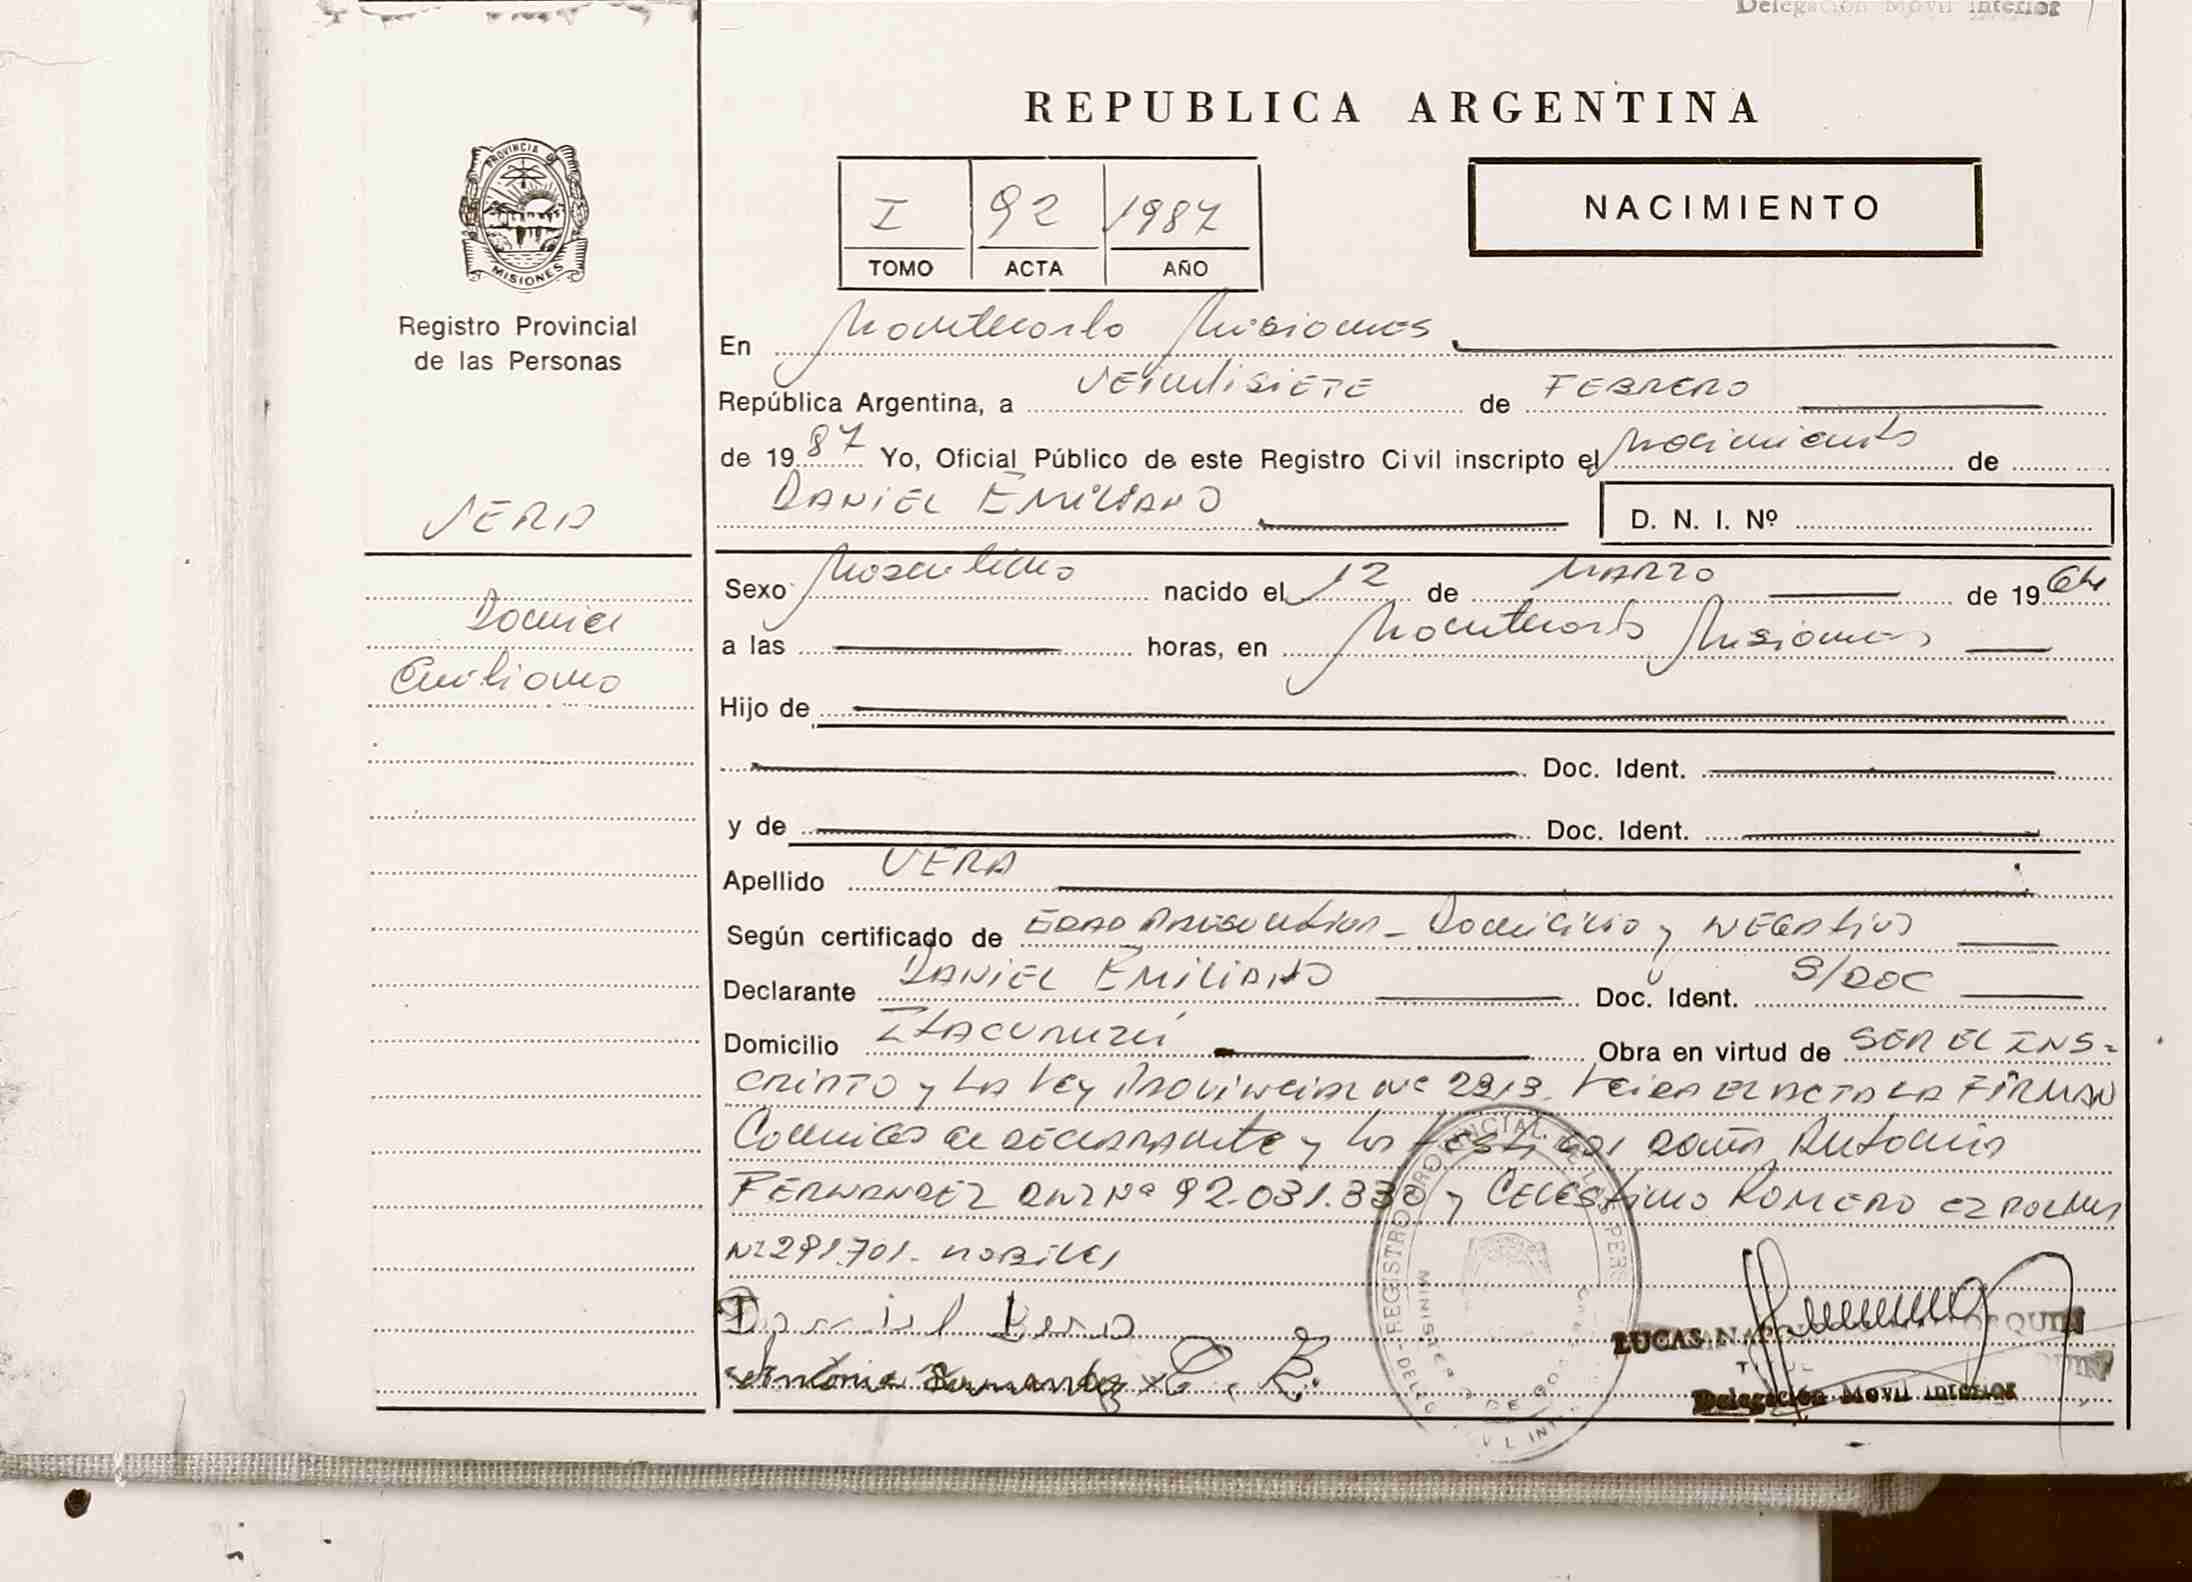 Delegación Movil Interior
REPUBLICA ARGENTINA
PROVINCIA DE
MISIONES
Registro Provincial
de las Personas
I 92 1987
TOMO ACTA AÑO
NACIMIENTO
En Montecarlo Misiones
República Argentina, a VEintisiETE de FEBRERO
de 1987 Yo, Oficial Público de este Registro Civil inscripto el Nacimiento de
DANIEL EMILIANO
D. N. I. Nº
VERA
Daniel
Emiliano
Sexo Masculino nacido el 12 de MARZO de 1964
a las horas, en Montecarlo Misiones
Hijo de
Doc. Ident.
y de Doc. Ident.
Apellido VERA
Según certificado de EDAD PRESUNTIVA - Domicilio y NEGATIVO
Declarante DANIEL EMILIANO Doc. Ident. S/DOC
Domicilio ITACURUZÚ Obra en virtud de SER EL INS-
CRIPTO y LA LEy PROVINCIAL Nº 2213. LEIDA EL ACTA LA FIRMAN
Conmigo el DECLARANTE y los testigos DOÑA Antonia
FERNANDEZ DNI Nº 92.031.330 y CELEStino ROMERO
Nº 291.701. HABILES
Daniel Vera
Antonia Fernandez C. R.
LUCAS QUIN
TITUL
Delegación Movil Interior
REGISTRO PROVINCIAL DE LAS PERS